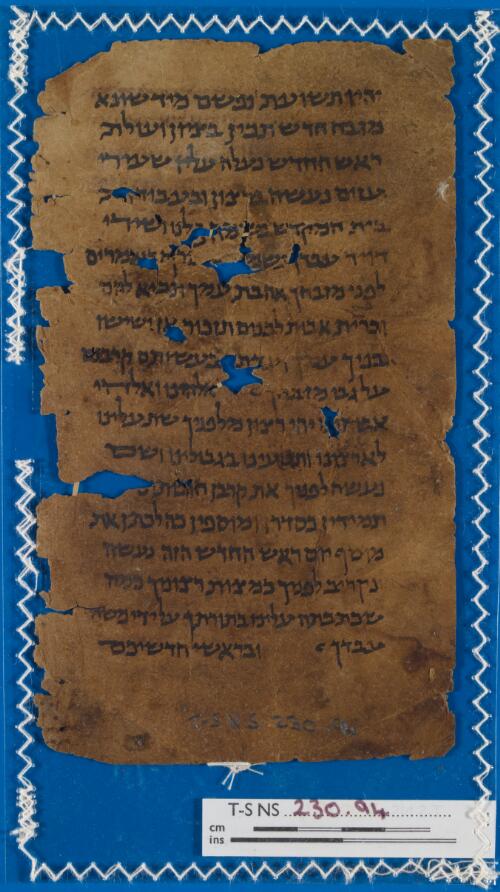 יהיו תשועת נפשם מיד שונא
מזבח חדש תכין בציון ועולת
ראש החדש נעלה עליו שעירי
עזים נעשה ברצון ובעבודת
בית המקדש נשמח כלנו ושירי
דויד עבדך הנאמרים
לפני מזבחך אהבת עולם תביא להם
וברית אבות לבנים תזכור
על גבו מזבחך אלהינו ואלהי
אבותינו יהי רצון מלפניך שתעלינו
לארצינו ותטעינו בגבולינו ושם
נעשה לפניך את קרבן חובותינו
תמידין כסדרן ומוספין כהלכתן את
מוסף יום ראש החדש הזה נעשה
נקריב לפניך כמצות רצונך כמה
שכתבתה עלינו בתורתך על ידי משה
עבדך ובראשי חדשיכם
T-S NS 230.94
T-S NS 230.94
cm
ins